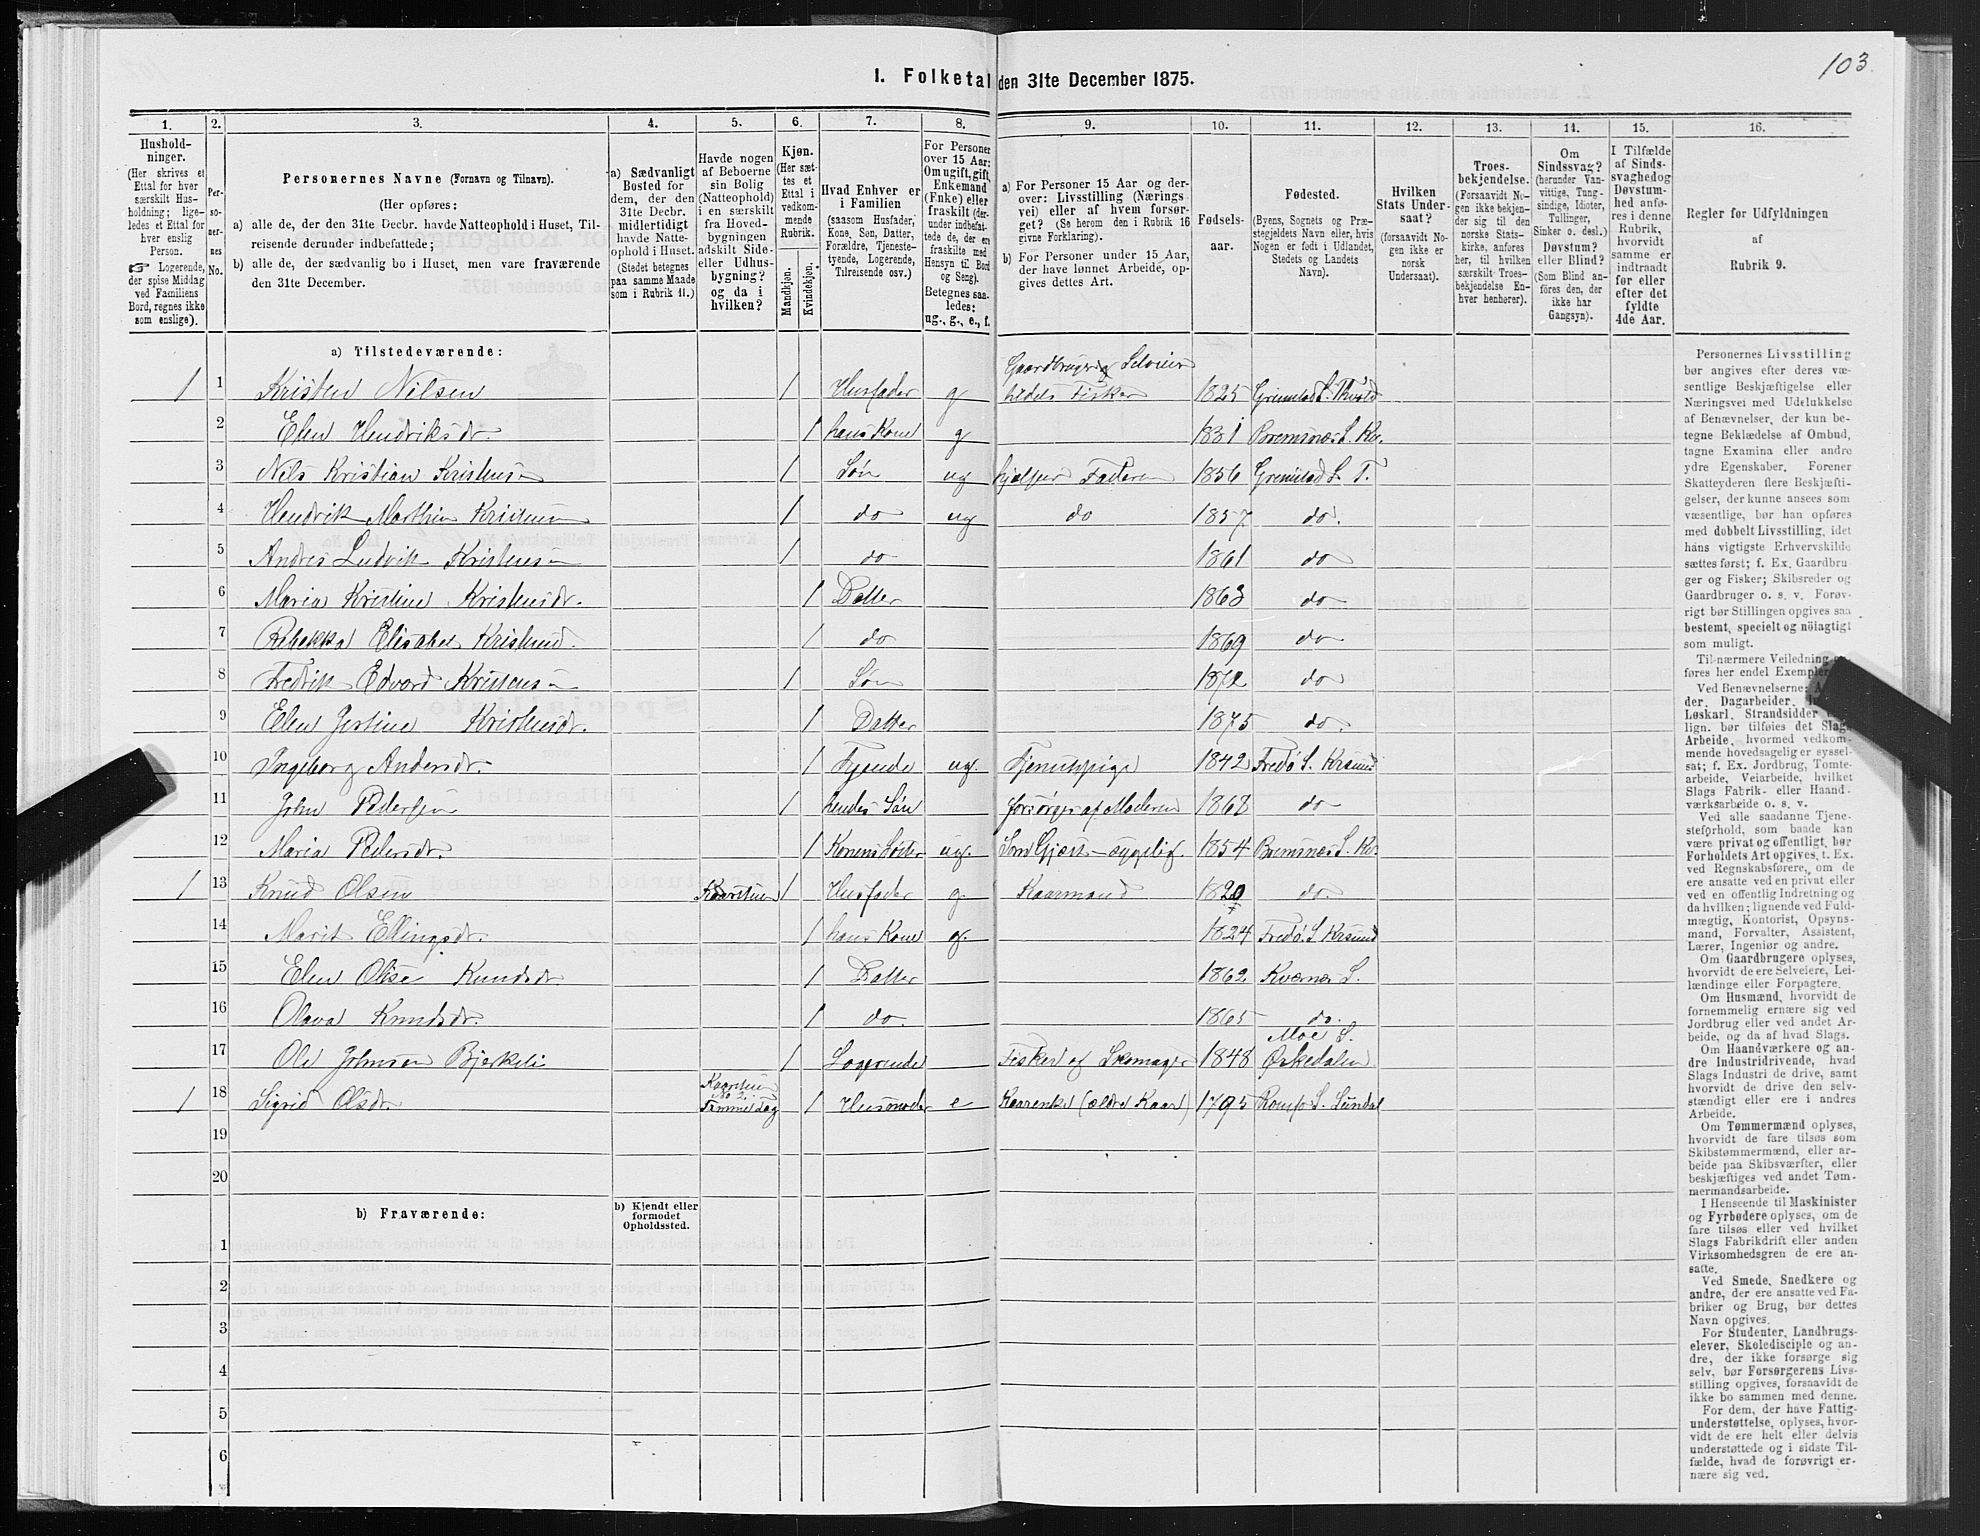 103
1. Folketal den 31te December 1875.
1. 2. 3. 4. 5. 6. 7. 8. 9. 10. 11. 12. 13. 14. 15. 16.
Hushold-
ninger.
(Her skrives et
Ettal for hver
særskilt Hus-
holdning; lige-
ledes et Ettal for
hver enslig
Person.
☞ Logerende,
der spise Middag
ved Familiens
Bord, regnes ikke
som enslige).
Per-
so-
ner-
nes
No.
Personernes Navne (Fornavn og Tilnavn).
(Her opføres:
a) alle de, der den 31te Decbr. havde Natteophold i Huset, Til-
reisende derunder indbefattede;
b) alle de, der sædvanlig bo i Huset, men vare fraværende
den 31te December.
a) Sædvanligt
Bosted for
dem, der den
31te Decbr.
midlertidigt
havde Natte-
ophold i Huset.
(Stedet betegnes
paa samme Maade
som i Rubrik 11.)
Havde nogen
af Beboerne
sin Bolig
(Natteophold)
i en særskilt
fra Hoved-
bygningen
adskilt Side-
eller Udhus-
bygning?
og da i
hvilken?
Kjøn.
(Her sæt-
tes et
Ettal i
vedkom-
mende
Rubrik.
Mandkjøn.
Kvindekjøn.
Hvad Enhver er
i Familien
(saasom Husfader,
Kone, Søn, Datter,
Forældre, Tjeneste-
tyende, Logerende,
Tilreisende osv.)
For Personer
over 15 Aar:
Om ugift, gift,
Enkemand
(Enke) eller
fraskilt (der-
under indbefat-
tede de, der ere
fraskilte med
Hensyn til Bord
og Seng).
Betegnes saa-
ledes:
ug., g., e., f.
a) For Personer 15 Aar og der-
over: Livsstilling (Nærings
vei) eller af hvem forsør-
get? (Se herom den i Rubrik 16
givne Forklaring).
b) For Personer under 15 Aar,
der have lønnet Arbeide, op-
gives dettes Art.
Fødsels-
aar.
Fødested.
(Byens, Sognets og Præ-
stegjeldets Navn eller, hvis
Nogen er født i Udlandet,
Stedets og Landets
Navn).
Hvilken
Stats Under-
saat?
(forsaavidt No-
gen ikke er
norsk
Undersaat).
Troes-
bekjendelse.
(Forsaavidt No-
gen ikke bekjen-
der sig til den
norske Stats-
kirke, anføres
her, til hvilken
særskilt Troes-
bekjendelse En-
hver henhører).
Om
Sindssvag?
(herunder Van-
vittige, Tung-
sindige, Idioter,
Tullinger,
Sinker o. desl.)
Døvstum?
eller Blind?
(Som Blind an-
føres den, der
ikke har
Gangsyn).
I Tilfælde
af Sinds-
svaghed og
Døvstum-
hed anfø-
res i denne
Rubrik,
hvorvidt
samme er
indtraadt
før eller
efter det
fyldte
4de Aar.
Regler for Udfyldningen
af
Rubrik 9.
a) Tilstedeværende:
1 1 Kristen Nilsen 1 Husfader g Gaardbruger og Selveier heldels Fisker 1825 Grimstad S.
2 Elen Hendriksdr. 1 hans Kone g 1831 Bremsnæs S. Kv.
3 Nils Kristian Kristensen 1 Søn ug hjelper Faderen 1856 Grimstad S. T.
4 Hendrik Marthin Kristensen 1 do ug do 1857 do.
5 Andres Ludvik Kristensen 1 do 1861 do
6 Maria Kristine Kristensdr. 1 Datter 1863 do
7 Rebekka Elisabet Kristensd. 1 do 1869 do
8 Fredrik Edvard Kristensen 1 Søn 1872 do
9 Elen Jestine Kristensdr. 1 Datter 1875 do.
10 Ingeborg Andersdr. 1 Tjende ug. Tjenestepige 1842 Fredö S. Krsund
11 John Pedersen 1 hendes Søn forsørges af Moderen 1868 do
12 Maria Pedersdr. 1 Konens Søster ug. Som Gjæst - sygelig. 1854 Bremsnæs S. Kv.
1 13 Knud Olsen 1 Husfader g Kaarmand 1820 do.
14 Marit Ellingsdr. 1 hans Kone g. 1824 Fredö. S. Krsund
15 Elen Olise Knudsdr 1 Datter 1862 Kvernes S.
16 Olava Knudsdr. 1 do. 1865 do.
17 Ole Johnsen Bjerkeli 1 Logerende Fisker og Skomager 1848 Moe S. Ørkedalen
1 18 Sigrid Olsdr. No 2. 1 Husmoder e Kaarenke (ældre Kaar) 1795 Romfo S. Sundal
19
20
b) Fraværende:
b) Kjendt eller
formodet
Opholdssted.
1
2
3
4
5
6
Personernes Livsstilling
bør angives efter deres væ-
sentlige Beskjæftigelse eller
Næringsvei med Udelukkelse
af Benævnelser, der kun be-
tegne Beklædelse af Ombud,
tagne Examina eller andre
ydre Egenskaber. Forener
Skatteyderen flere Beskjæfti-
gelser, der kunne ansees som
væsentlige, bør han opføres
med dobbelt Livsstilling, idet
hans vigtigste Erhvervskilde
sættes først; f. Ex. Gaardbru-
ger og Fisker; Skibsreder og
Gaardbruger o. s. v. Forøv-
rigt bør Stillingen opgives saa
bestemt, specielt og nöiagtigt
som muligt.
Til nærmere Veiledning
føres her endel Exempler
Ved Benævnelserne:
der, Dagarbeider,
Løskarl, Strandsidder
lign. bør tilføies det Slags
Arbeide, hvormed vedkom-
mende hovedsagelig er syssel-
sat; f. Ex. Jordbrug, Tomte-
arbeide, Veiarbeide, hvilket
Slags Fabrik- eller Haand-
værksarbeide o. s. v.
Ved alle saadanne Tjene-
steforhold, som baade kan
være privat og offentligt, bør
Forholdets Art opgives, t. Ex.
ved Regnskabsførere, om de
ere ansatte ved en privat eller
ved en offentlig Indretning og
da hvilken; lignende ved Fuld-
mægtig, Kontorist, Opsyns-
mand, Forvalter, Assistent,
Lærer, Ingeniør og andre.
Om Gaardbrugere oplyses,
hvorvidt de ere Selveiere, Lei-
lændinge eller Forpagtere.
Om Husmænd, hvorvidt de
fornemmelig ernære sig ved
Jordbrug eller ved andet Ar-
beide, og da af hvad Slags.
Om Haandværkere og an-
dre Industridrivende, hvad
Slags Industri de drive, samt
hvorvidt de drive den selv-
stændigt eller ere i andres
Arbeide.
Om Tømmermænd oplyses,
hvorvidt de fare tilsøs som
Skibstømmermænd, eller ar-
beide paa Skibsværfter, eller
beskjæftiges ved andet Tøm-
mermandsarbeide.
I Henseende til Maskinister
og Fyrbødere oplyses, om de
fare tilsøs eller ved hvilket
Slags Fabrikdrift eller anden
Virksomhedsgren de ere an-
satte.
Ved Smede, Snedkere og
andre, der ere ansatte ved Fa-
briker og Brug, bør dettes
Navn opgives.
For Studenter, Landbrugs-
elever, Skoledisciple og an-
dre, der ikke forsørge sig
selv, bør Forsørgerens Livs-
stilling opgives, forsaavidt de
ikke bo sammen med denne.
For dem, der have Fattig-
understøttelse, oplyses, hvor-
vidt de ere helt eller delvis
understøttede og i sidste Til-
fælde, hvad de forøvrigt er-
nære sig ved.